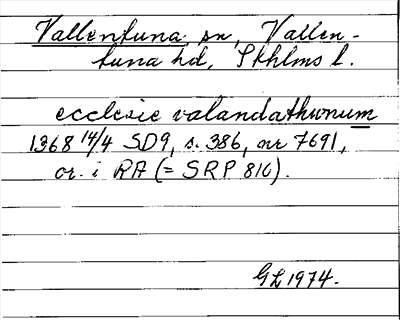 Vallentuna sn, Vallen-
tuna hd, Sthlms l.
ecclesie valandathunum
1368 14/4 SD9, s. 386, nr 7691,
or. i RA (= SRP 810).
GL 1974.